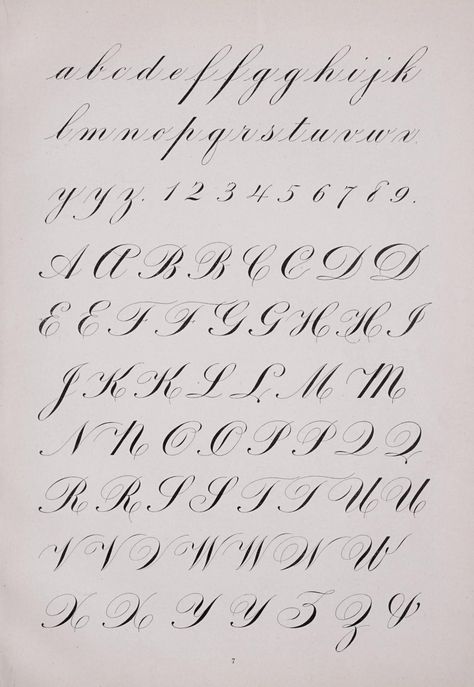 a b c d e f f g g h i j k
l m n o p q r s t u v w x
y y z. 1 2 3 4 5 6 7 8 9.
A A B B C C D D
E E F F G G H H I
J K K L L M M
N N O O P P Q Q
R R S S T T U U
V V V W W W W
X X Y Y Z Z &
7